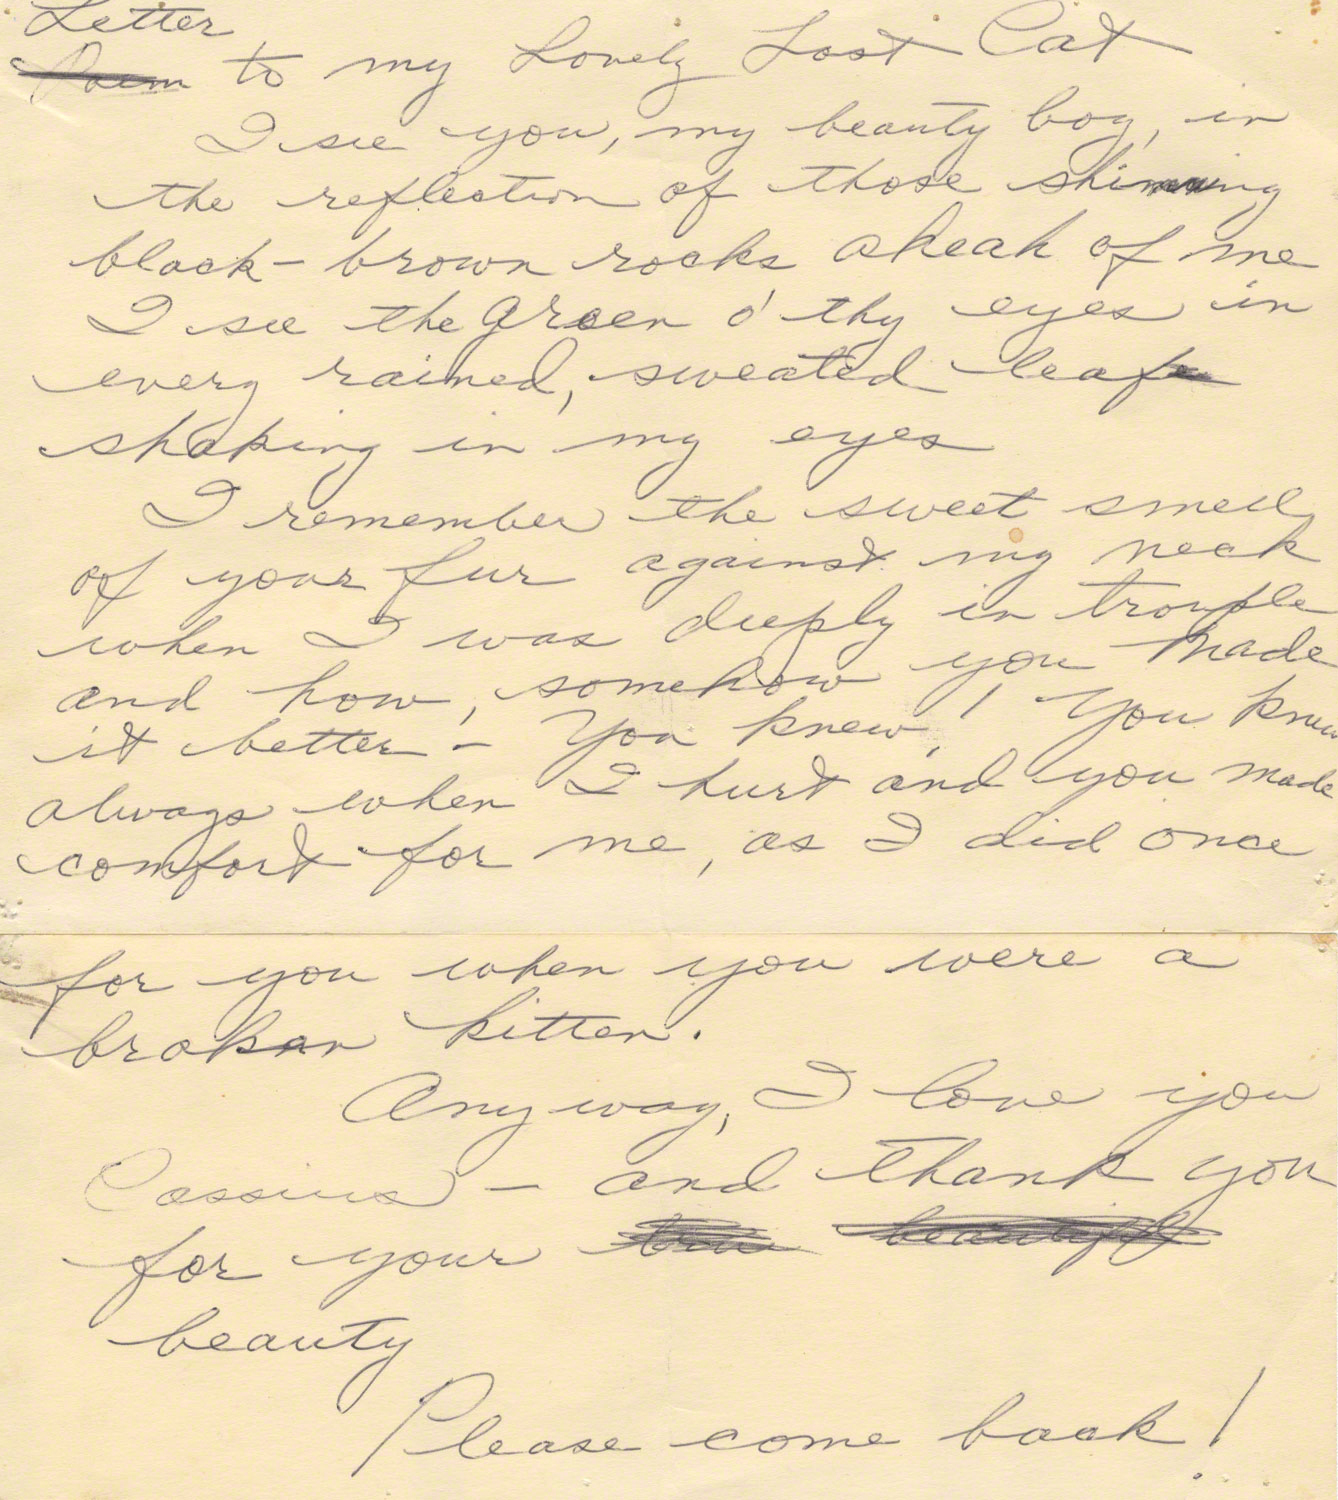 Letter
Poem to my Lovely Lost Cat
I see you, my beauty boy, in
the reflection of those shinning
black-brown rocks ahead of me
I see the green o' thy eyes in
every rained, sweated leaf
shaking in my eyes
I remember the sweet smell
of your fur against my neck
when I was deeply in trouble
and how, somehow you made
it better - You knew! You knew
always when I hurt and you made
comfort for me, as I did once
for you when you were a
broken kitten.
Anyway, I love you
Cassius - and thank you
for your beautiful
beauty
Please come back!